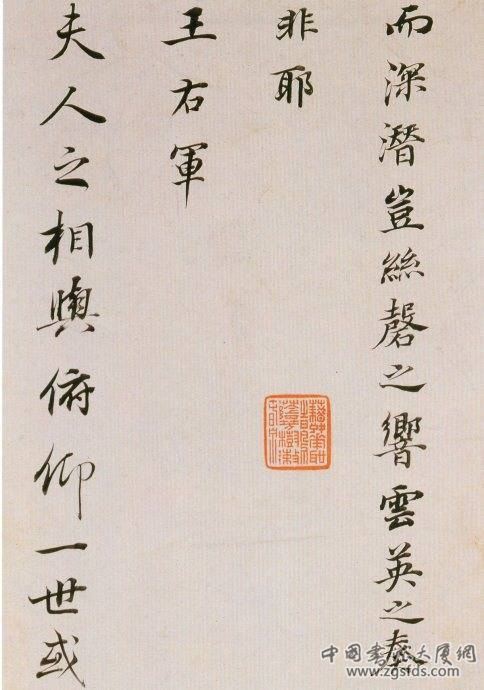 而深潛豈絲磬之響雲英之奏
非耶
王右軍
夫人之相與俯仰一世或
中國書法大廈網
www.zgsfds.com